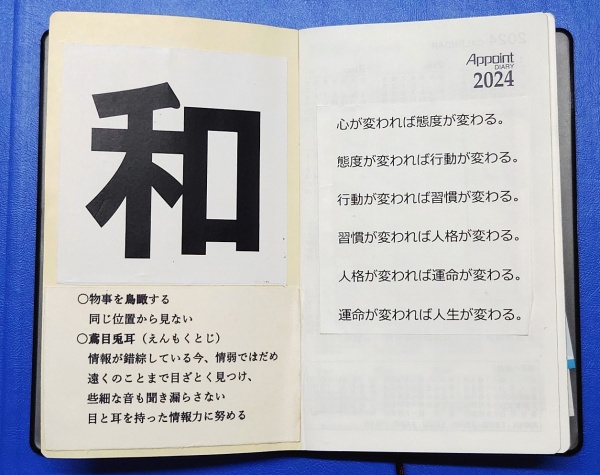 和
○物事を鳥瞰する
同じ位置から見ない
○鳶目兎耳（えんもくとじ）
情報が錯綜している今、情弱ではだめ
遠くのことまで目ざとく見つけ、
些細な音も聞き漏らさない
目と耳を持った情報力に努める
Appoint
DIARY
2024
心が変われば態度が変わる。
態度が変われば行動が変わる。
行動が変われば習慣が変わる。
習慣が変われば人格が変わる。
人格が変われば運命が変わる。
運命が変われば人生が変わる。